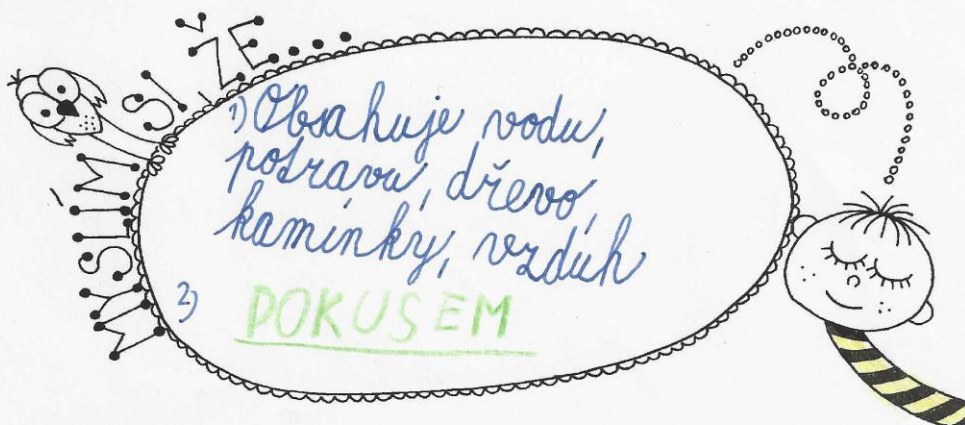 MYSLÍM SI, ŽE....
1) Obsahuje vodu,
potravu, dřevo,
kamínky, vzduh
2) POKUSEM